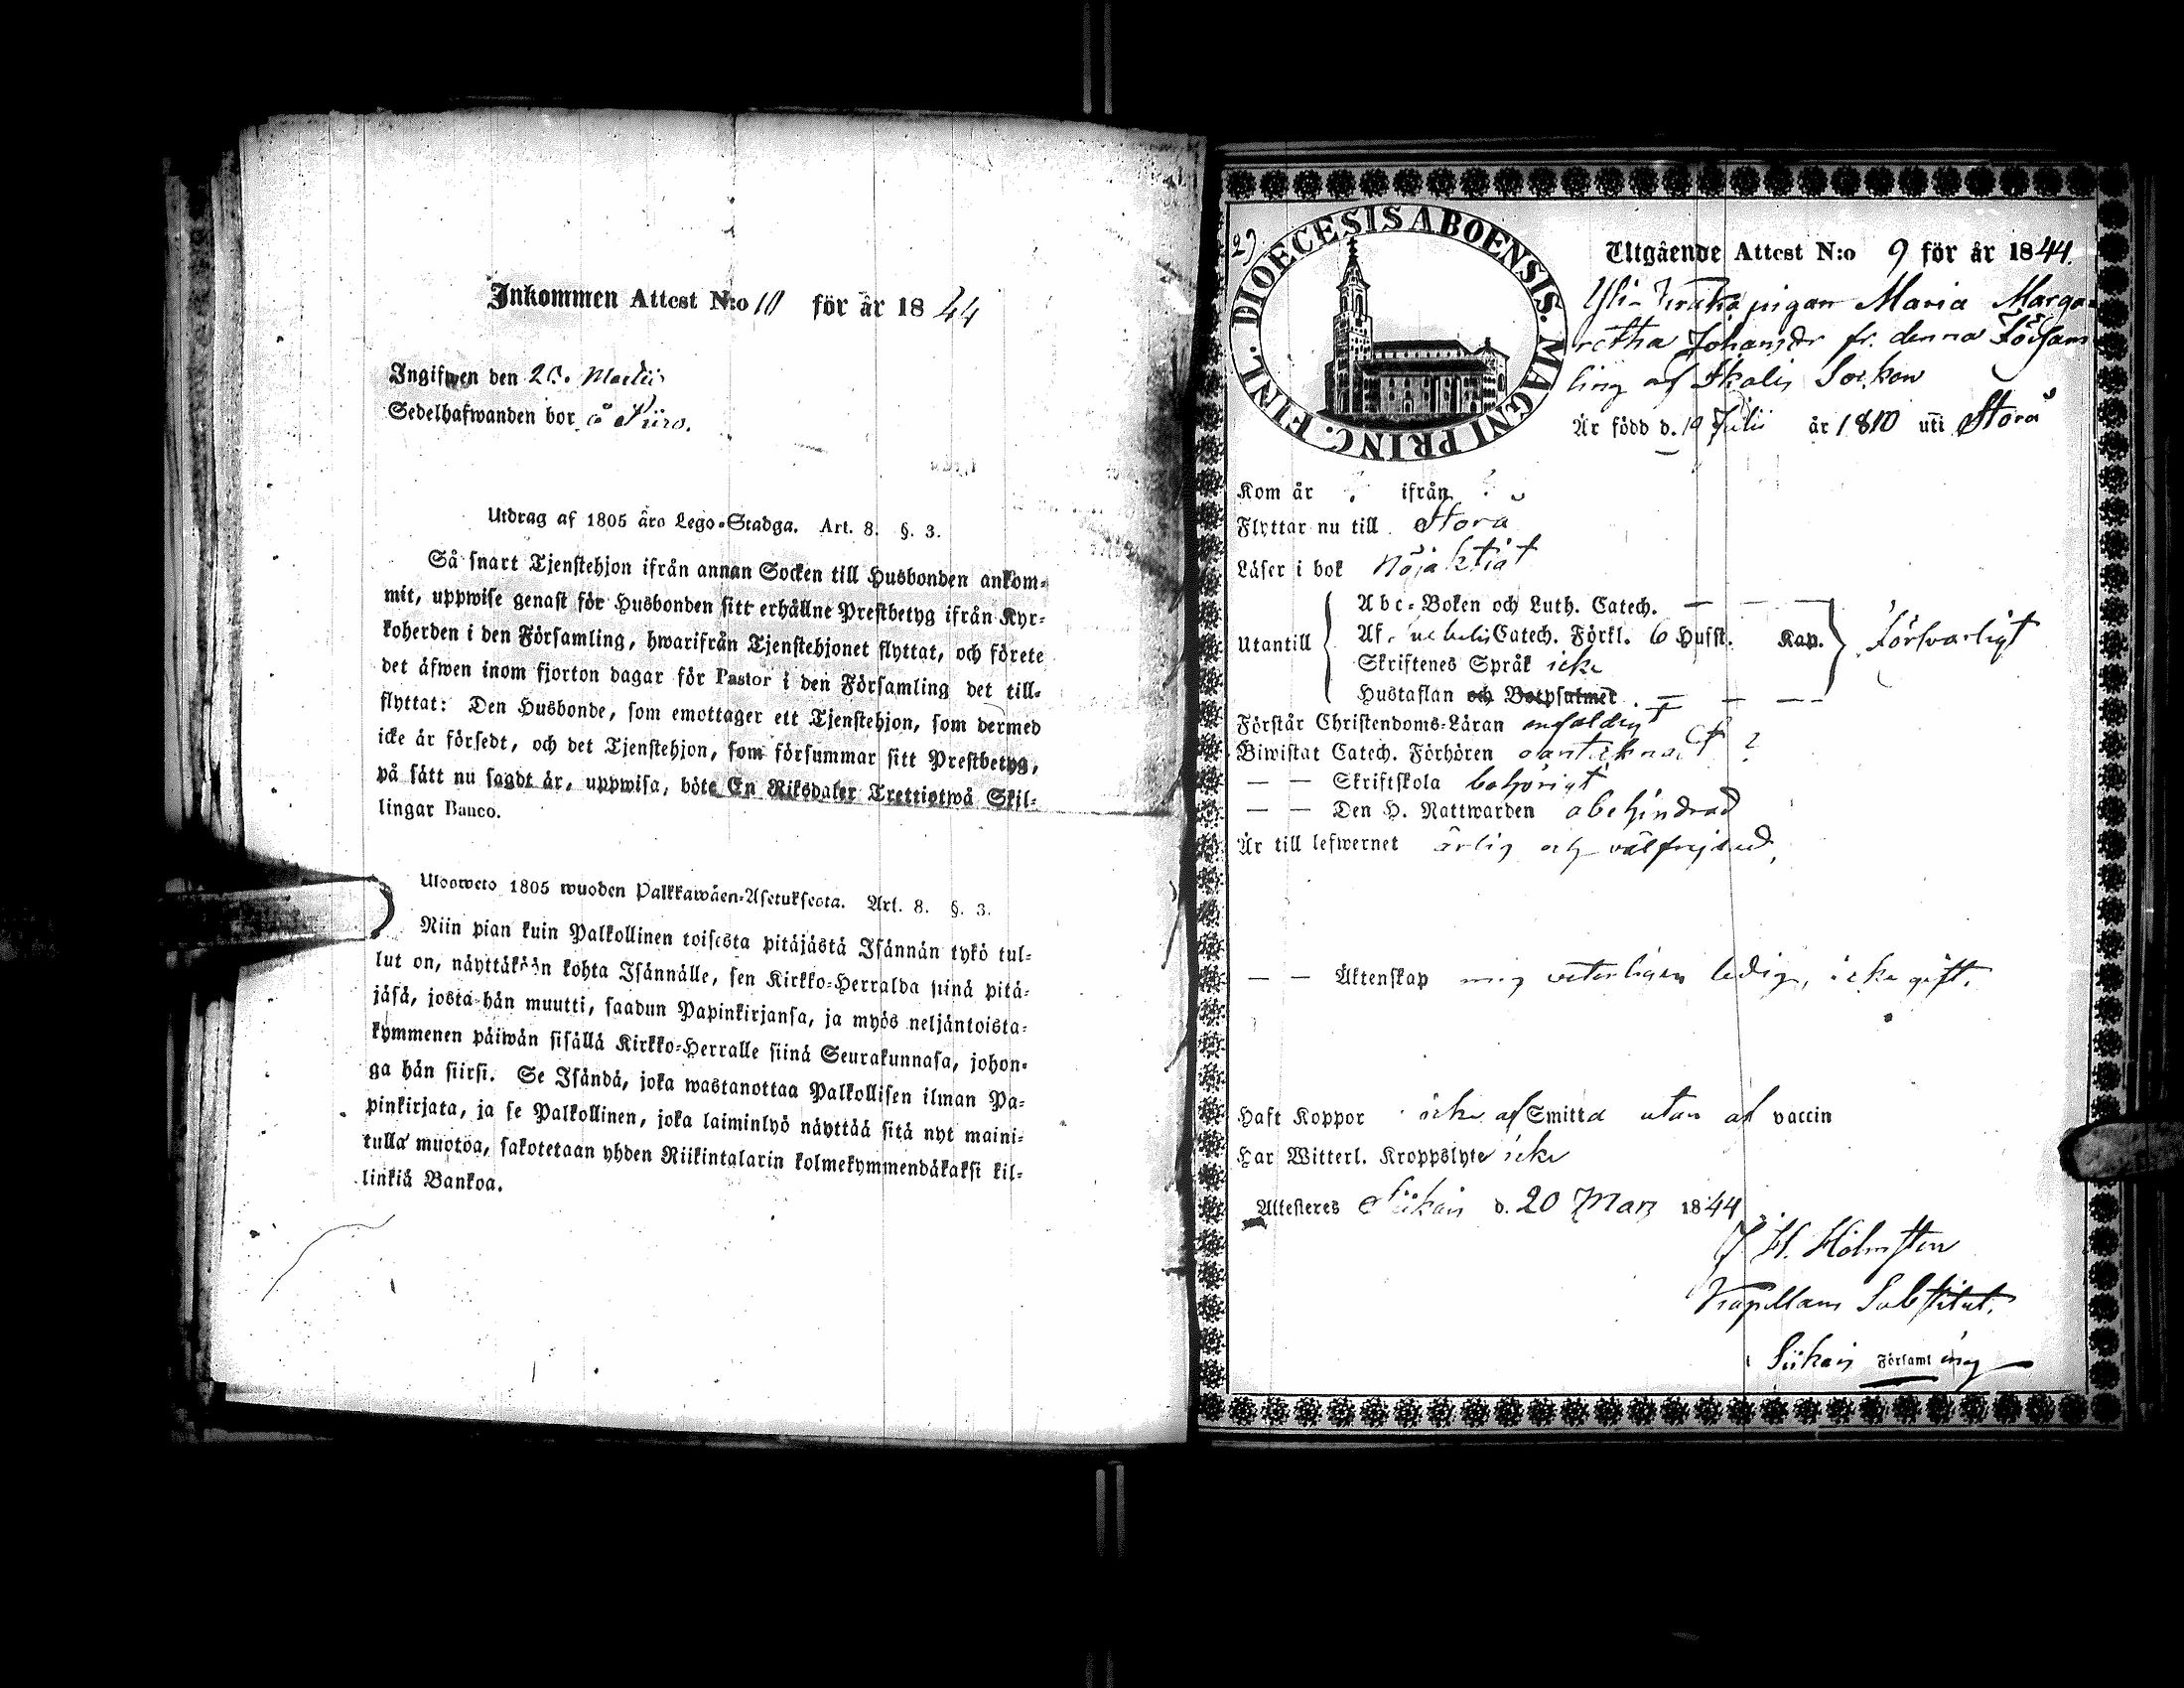 Inkommen Attest N:o 10 för år 1844
Ingifwen den 2. Martii
Sedelhafwanden bor å Piiro.
Utdrag af 1805 års Lego-Stadga. Art. 8. §. 3.
Så snart Tjenstehjon ifrån annan Socken till Husbonden ankom-
mit, uppwise genast för Husbonden sitt erhållne Prestbetyg ifrån Kyr-
koherden i den Församling, hwarifrån Tjenstehjonet flyttat, och förete
det äfwen inom fjorton dagar för Pastor i den Församling det till-
flyttat: Den Husbonde, som emottager ett Tjenstehjon, som dermed
icke är försedt, och det Tjenstehjon, som försummar sitt Prestbetyg,
på sätt nu sagdt är, uppwisa, böte En Riksdaler Trettiotwå Skil-
lingar Banco.
Ulosweto 1805 wuoden Palkkawäen-Asetuksesta. Art. 8. §. 3.
Niin pian kuin Palkollinen toisesta pitäjästä Isännän tykö tul-
lut on, näyttäköön kohta Isännälle, sen Kirkko-Herralda siinä pitä-
jäsä, josta hän muutti, saadun Papinkirjansa, ja myös neljäntoista-
kymmenen päiwän sisällä Kirkko-Herralle siinä Seurakunnasa, johon-
ga hän siirsi. Se Isändä, joka wastanottaa Palkollisen ilman Pa-
pinkirjata, ja se Palkollinen, joka laiminlyö näyttää sitä nyt maini-
tulla muotoa, sakotetaan yhden Riikintalarin kolmekymmendäkaksi kil-
linkiä Bankoa.
29
DIOECESIS ABOENSIS. MAGNI PRINC. FINL.
Utgående Attest N:o 9 för år 1844.
Yli- pigan Maria Marga-
retha Johansdr fr. denna Försam-
ling af Ikalis Socken
Är född d. 19 Julii år 1810 uti Storå
Kom år ? ifrån ?
Flyttar nu till Storå
Läser i bok nöjaktigt
Utantill
Abc-Boken och Luth. Catech. — — —
Af Catech. Förkl. 6 Hufst. Kap.
Skriftenes Språk icke
Hustaflan och Botpsalmer — — —
Försvarligt
Förstår Christendoms-Läran enfaldigt
Biwistat Catech. Förhören oantecknadt ?
— — Skriftskola behörigt
— — Den H. Nattwarden obehindrad
Är till lefwernet ärlig och välfrejdad,
— — Äktenskap mig veterligen ledig, icke gift.
Haft Koppor icke af Smitta utan af vaccin
Har Witterl. Kroppslyte icke
Attesteres Siikais d. 20 Mars 1844
J H. Holmsten
Kapellans Substitut.
i Siikais Församling